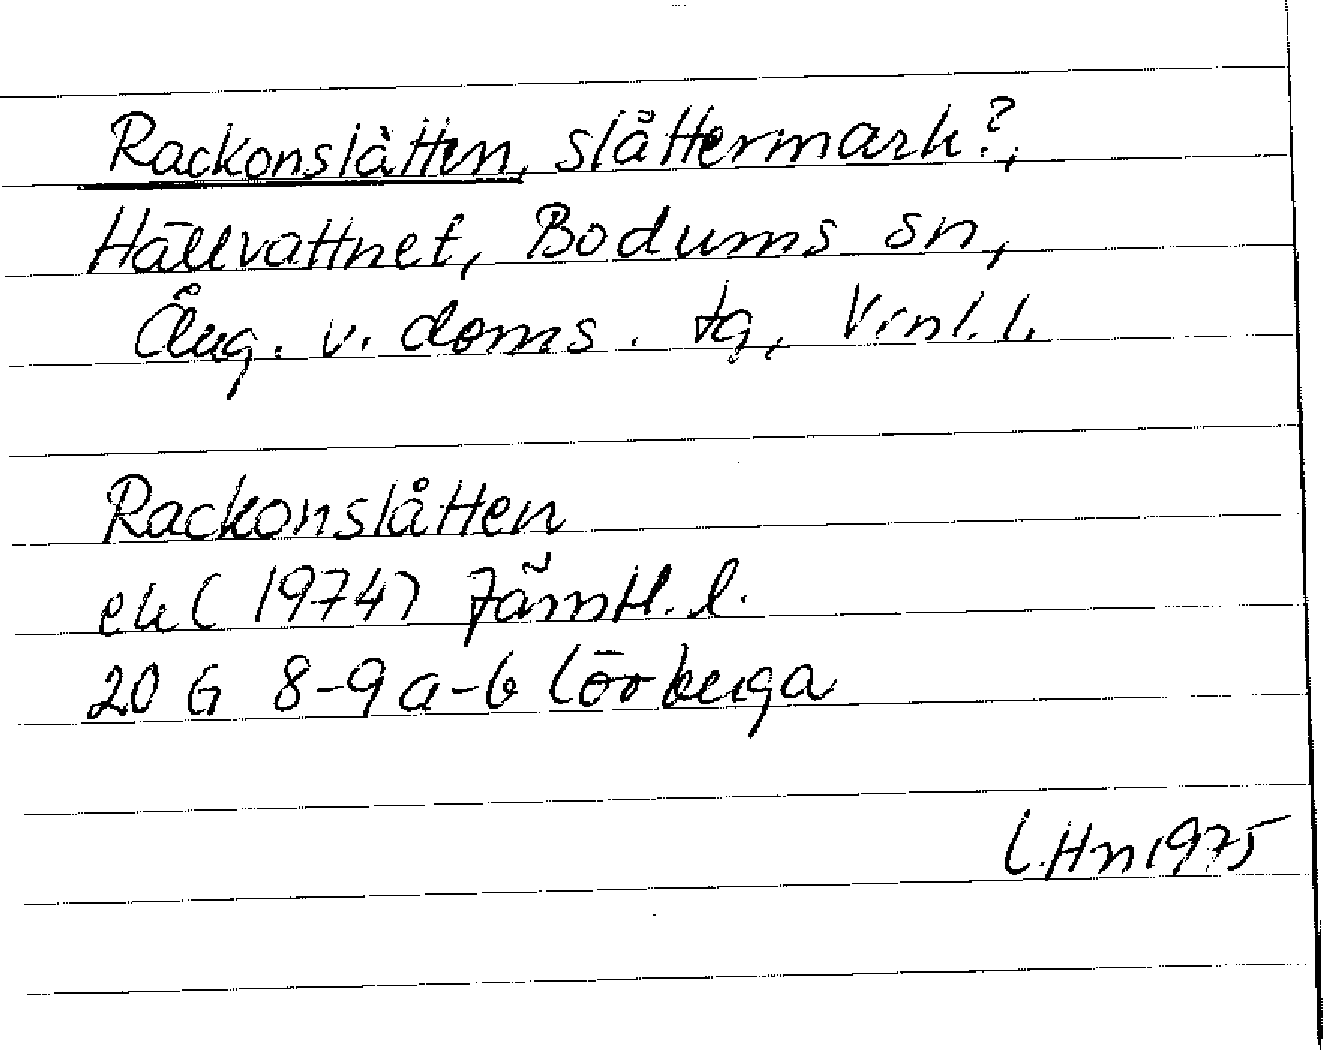 Rackonslåtten, slåttermark?,
Hällvattnet, Bodums sn,
Ång. v. doms. tg, Vrnl. l.
Rackonslåtten
ek (1974) Jämtl. l.
20 G 8-9 a-b Lörberga
L.Hn 1975